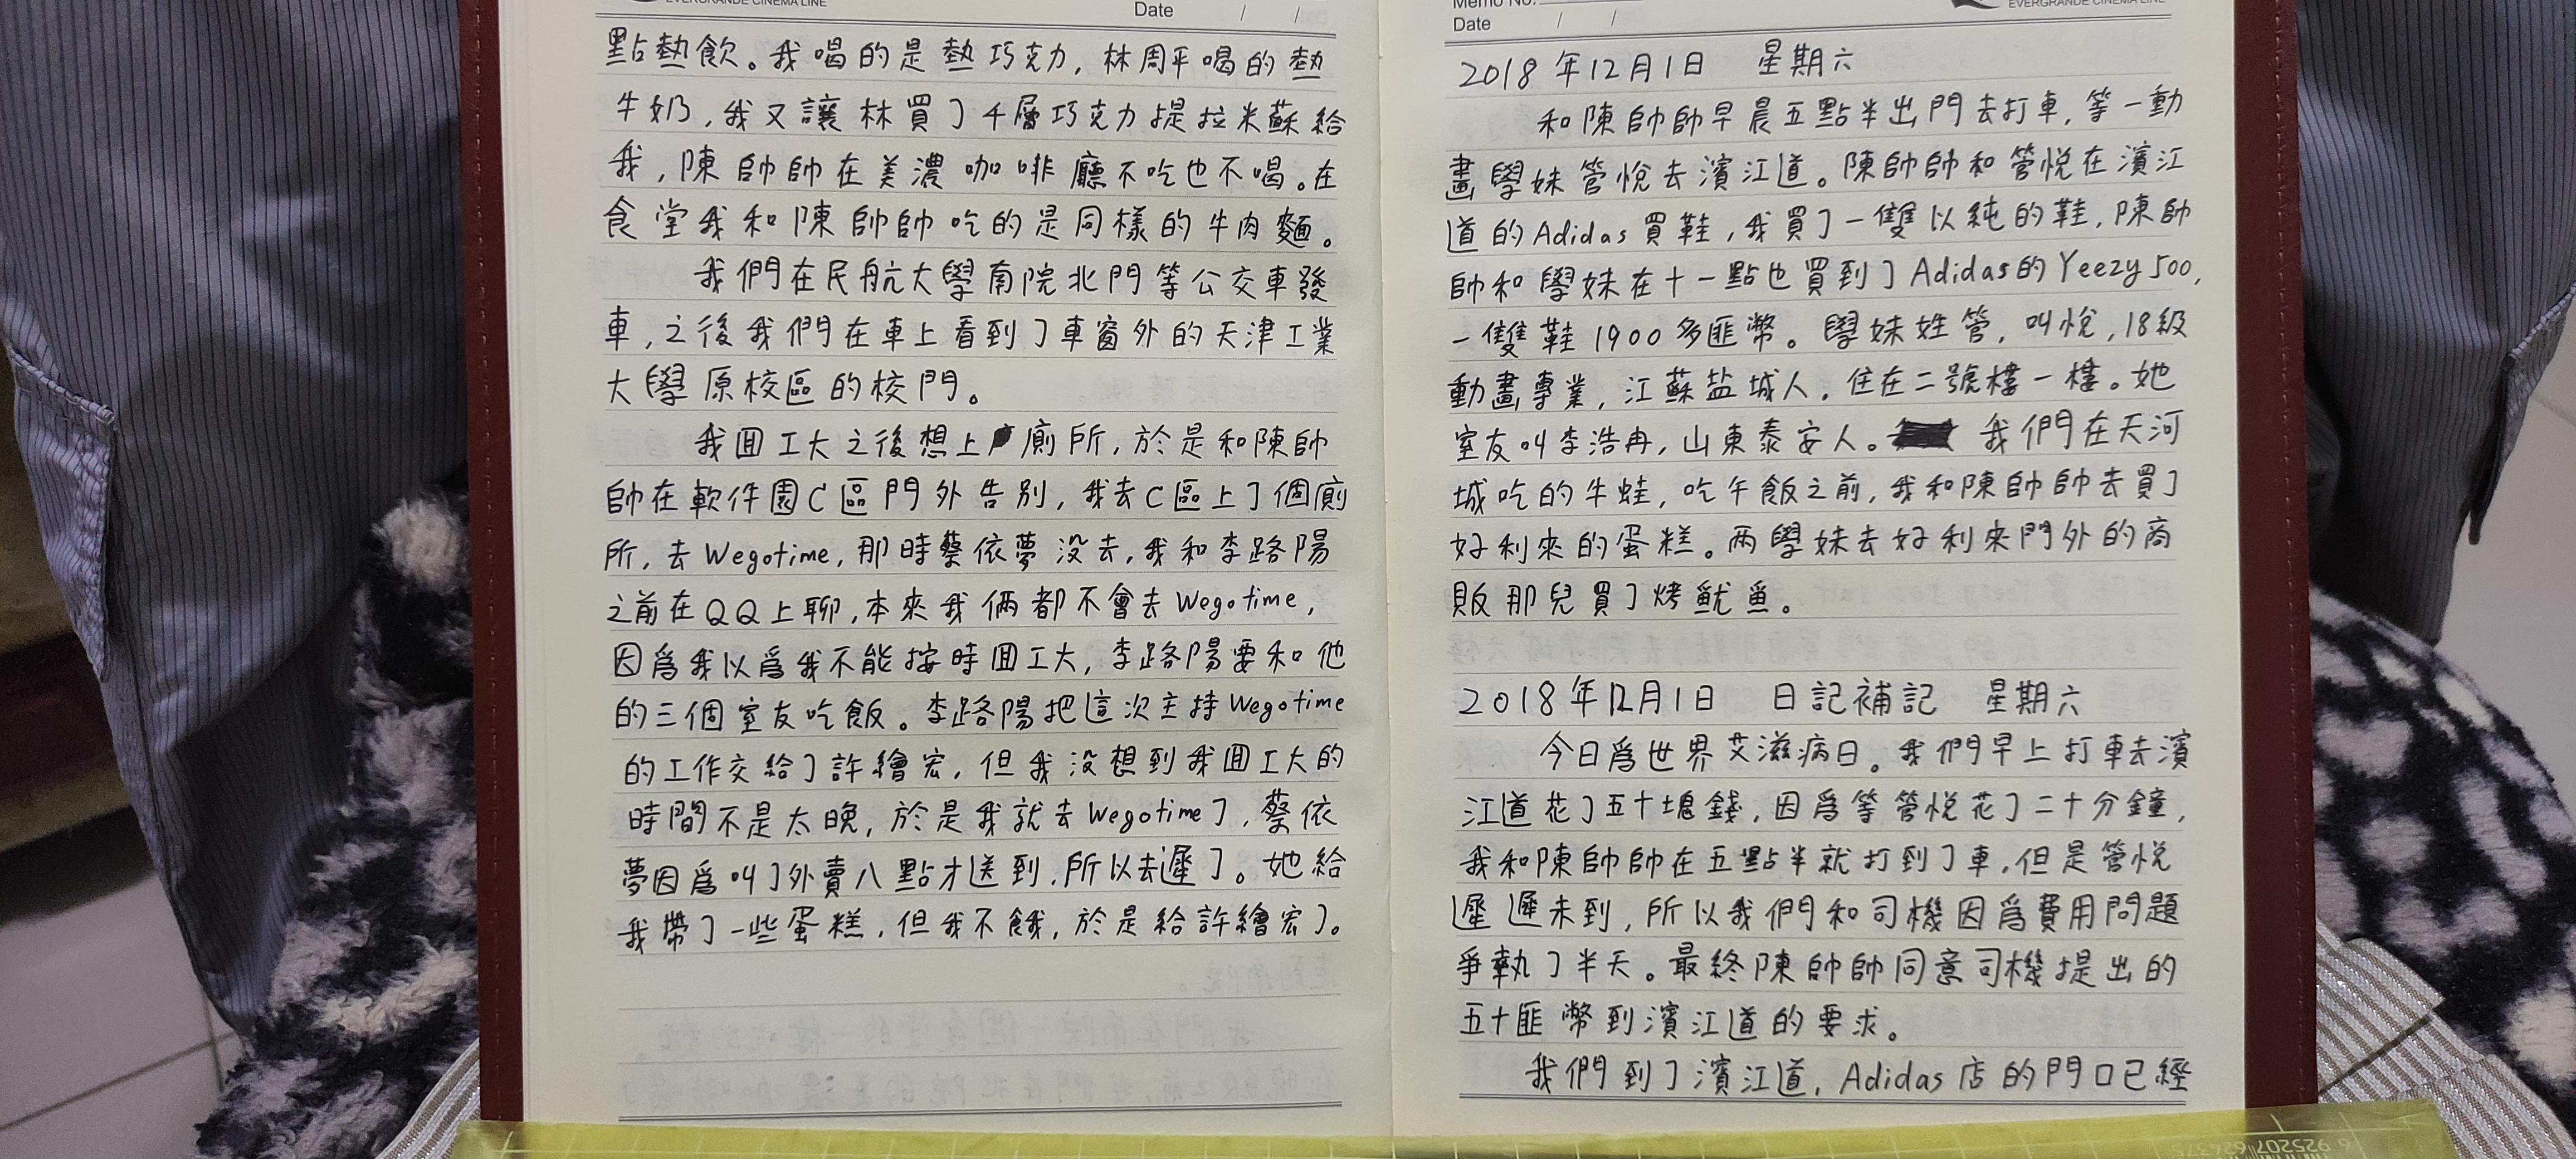 EVERGRANDE CINEMA LINE
Date / /
點熱飲。我喝的是熱巧克力，林周平喝的熱
牛奶，我又讓林買了千層巧克力提拉米蘇給
我，陳帥帥在美濃咖啡廳不吃也不喝。在
食堂我和陳帥帥吃的是同樣的牛肉麵。
我們在民航大學南院北門等公交車發
車，之後我們在車上看到了車窗外的天津工業
大學原校區的校門。
我囬工大之後想上廁所，於是和陳帥
帥在軟件園C區門外告別，我去C區上了個廁
所，去Wegotime，那時蔡依夢没去，我和李路陽
之前在QQ上聊，本來我倆都不會去Wegotime，
因爲我以爲我不能按時囬工大，李路陽要和他
的三個室友吃飯。李路陽把這次主持Wegotime
的工作交給了許繪宏，但我没想到我囬工大的
時間不是太晚，於是我就去Wegotime了，蔡依
夢因爲叫了外賣八點才送到，所以去遲了。她給
我帶了一些蛋糕，但我不餓，於是給許繪宏了。
Memo No.
Date / /
EVERGRANDE CINEMA LINE
2018年12月1日 星期六
和陳帥帥早晨五點半出門去打車，等一動
畫學妹管悅去濱江道。陳帥帥和管悅在濱江
道的Adidas買鞋，我買了一雙以純的鞋，陳帥
帥和學妹在十一點也買到了Adidas的Yeezy 500，
一雙鞋1900多匪幣。學妹姓管，叫悅，18級
動畫專業，江蘇盐城人，住在二號樓一樓。她
室友叫李浩冉，山東泰安人。我們在天河
城吃的牛蛙，吃午飯之前，我和陳帥帥去買了
好利來的蛋糕。两學妹去好利來門外的商
販那兒買了烤魷魚。
2018年12月1日 日記補記 星期六
今日爲世界艾滋病日。我們早上打車去濱
江道花了五十塊錢，因爲等管悅花了二十分鐘，
我和陳帥帥在五點半就打到了車，但是管悅
遲遲未到，所以我們和司機因爲費用問題
爭執了半天。最終陳帥帥同意司機提出的
五十匪幣到濱江道的要求。
我們到了濱江道，Adidas店的門口已經
6 925207 624375